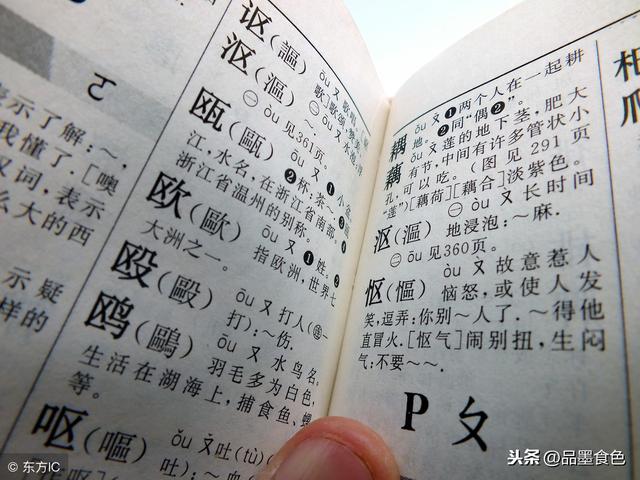 ㄛ
表示了解：～，
我懂了.［噢
叹词，表示
么大的西
示疑
样的
讴（謳） ōu ㄡ
歌］歌颂
沤（漚） ㊀ ōu ㄡ 水
～.
㊁ òu 见361页。
瓯（甌） ōu ㄡ ❶小
❷杯：茶～.
江，水名，在浙江省南部。
浙江省温州的别称。
欧（歐） ōu ㄡ ❶姓。
指欧洲，世界七
大洲之一。
殴（毆） ōu ㄡ 打人（㊣一
打）：～伤.
鸥（鷗） ōu ㄡ 水鸟名。
羽毛多为白色，
生活在湖海上，捕食鱼、螺
等。
呕（嘔） ǒu ㄡ 吐（tù）（
吐）：～血（
耦 ǒu ㄡ ❶两个人在一起耕
地。❷同“偶❷”。
藕 ǒu ㄡ 莲的地下茎，肥大
有节，中间有许多管状小
孔，可以吃。（图见291页
“莲”）［藕荷］［藕合］淡紫色。
沤（漚） ㊀ òu ㄡ 长时间
地浸泡：～麻.
㊁ ōu 见360页。
怄（慪） òu ㄡ 故意惹人
恼怒，或使人发
笑，逗弄：你别～人了.～得他
直冒火.［怄气］闹别扭，生闷
气：不要～～.
P ㄆ
爬
© 东方IC
头条 @品墨食色